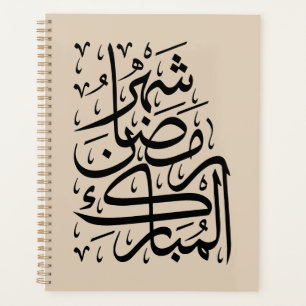 شهر
رمضان
المبارك